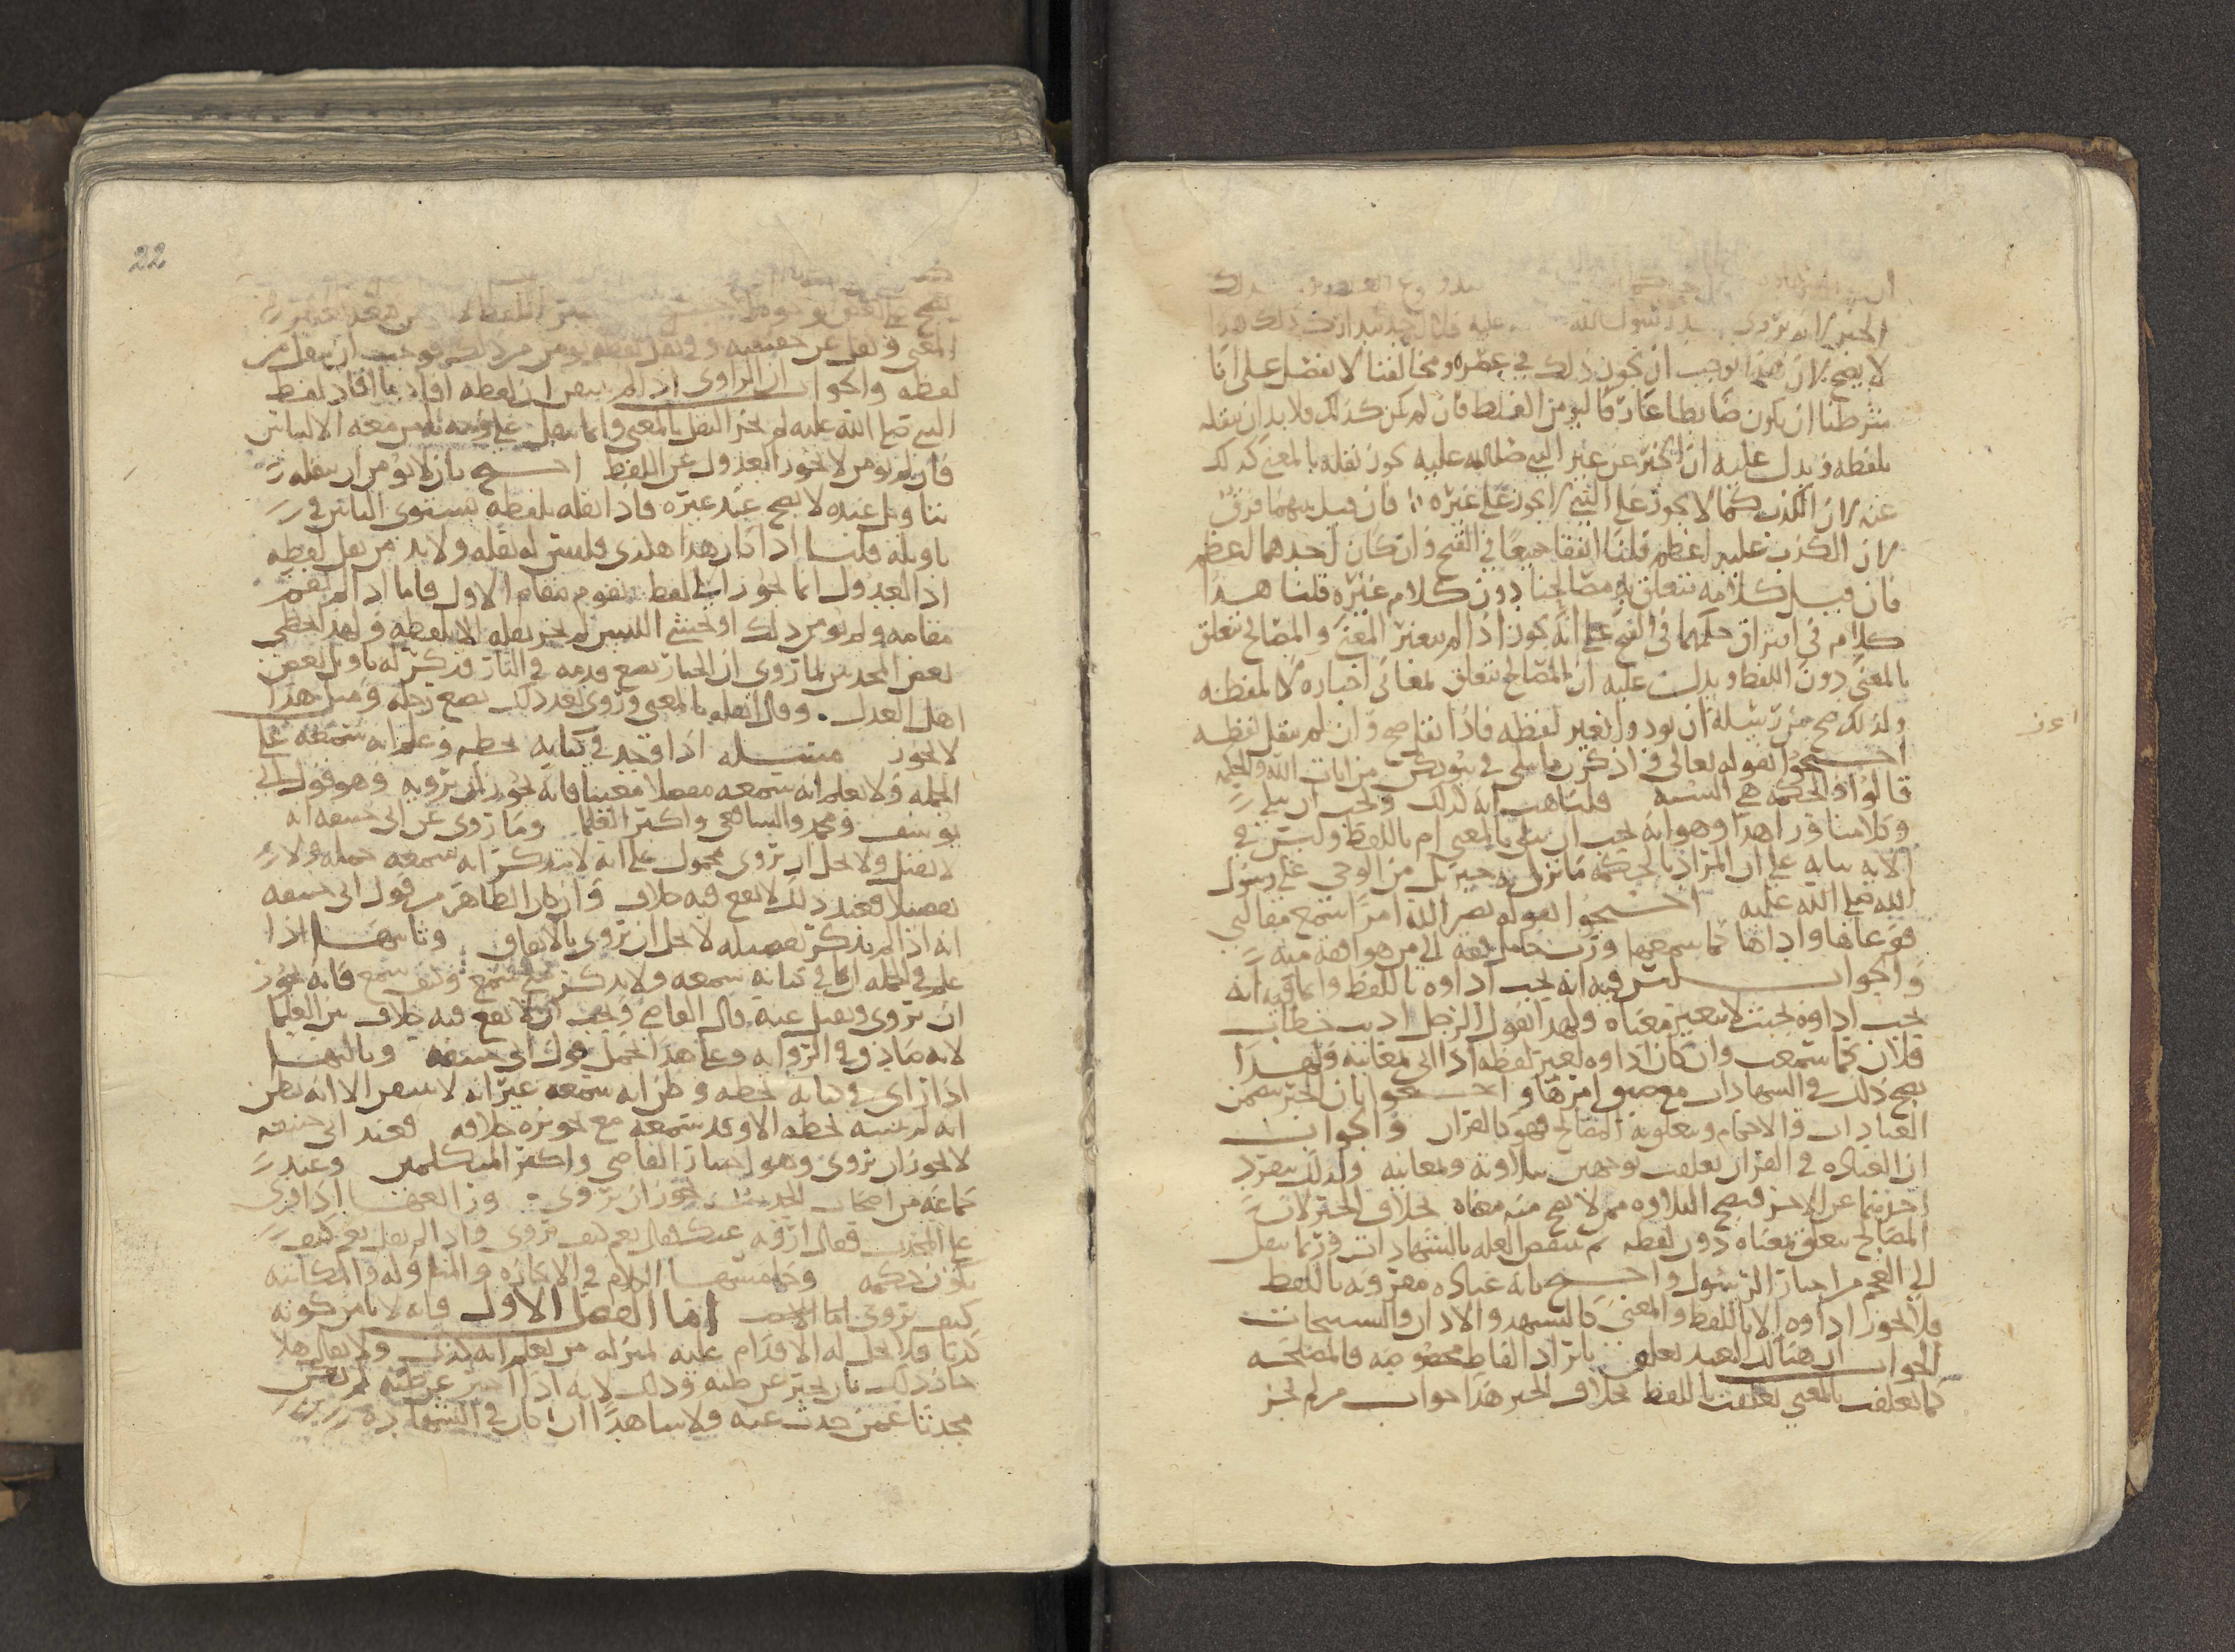 الخبر لانه يروي
لا يصح لان هذا يوجب ان يكون ذلك في عصره ومخالفنا لا يفصل على انا
شرطنا ان يكون ضابطا عارفا ليومن الغلط فان لم يكن كذلك فلا بد ان ينقله
بلفظه ويدل عليه ان الخبر عن غير النبي صلى الله عليه يجوز نقله بالمعنى كذلك
عنه لان الكذب كما لا يجوز على النبي لا يجوز على غيره فان قيل بينهما فرق
لان الكذب عليه اعظم قلنا اتفقا جميعا في القبح وان كان احدهما اعظم
فان قيل كلامه تتعلق به مصالحنا دون كلام غيره قلنا هذا
كلام في افتراق حكمهما في القبح على انه يجوز اذا لم يتغير المعنى والمصالح تتعلق
بالمعنى دون اللفظ ويدل عليه ان المصالح تتعلق بمعاني اخباره لا بلفظه
ولذلك صح من رسله ان يودوا بغير لفظه فاذا
صح وان لم ينقل لفظه
احتجوا بقوله تعالى واذكرن ما يتلى في بيوتكن من ايات الله والحكمة
قالوا والحكمة هي السنة قلنا هب انه كذلك ويجب ان يتلى
وكلامنا ورا هذا وهو انه يجب ان يتلى بالمعنى ام باللفظ وليس في
الاية بيانه على ان المراد بالحكمة ما نزل به جبريل من الوحي على رسول
الله صلى الله عليه احتجوا بقوله نضر الله امرا سمع مقالتي
فوعاها واداها كما سمعها ورب حامل فقه الى من هو افقه منه
والجواب ليس فيه انه يجب اداوه باللفظ وانما فيه انه
يجب اداوه بحيث لا يتغير معناه ولهذا يقول الرجل اديت خطاب
فلان كما سمعت وان كان اداوه بغير لفظه اذا اتى بمعانيه ولهذا
يصح ذلك في الشهادات مع ضيق امرها واحتجوا بان الخبر يتضمن
العبادات والاحكام ويتعلق به المصالح فهو كالقران والجواب
ان العبادة في القران تعلقت بوجهين بتلاوته وبمعانيه ولذلك ينفرد
احدهما عن الاخر فتصح التلاوة ممن لا يصح منه معناه بخلاف الخبر لان
المصالح تتعلق بمعناه دون لفظه ثم ينتقض العلة بالشهادات وربما ينقل
الى العجم من اخبار الرسول واحتج بانه عبادة مقرونة باللفظ
فلا يجوز اداوه الا باللفظ والمعنى كالتشهد والاذان والتسبيحات
الجواب ان هناك التعبد تعلق بايراد الفاظ مخصوصة فالمصلحة
كما تعلقت بالمعنى تعلقت باللفظ بخلاف الخبر هذا جواب من لم يجز
22
المعنى ونقل عن حقيقته وفي نقل لفظه يومن من ذلك فوجب ان ينقل من
لفظه والجواب ان الراوي اذا لم يتيقن ان لفظه افاد ما افاد لفظ
النبي صلى الله عليه لم يجز النقل بالمعنى وانما ينقل على وجه ليس معه الالباس
فان لم يومن لا يجوز العدول عن اللفظ احتج بان لا يومن ان ينقله
بتاويل عنده لا يصح عند غيره فاذا نقله بلفظه يستوي الناس في
تاويله قلنا اذا كان هذا هكذى فليس له نقله ولا بد من نقل لفظه
اذ العدول انما يجوز الى لفظ يقوم مقام الاول فاما اذا لم يقم
مقامه ولم يومن ذلك او خشي اللبس لم يجز نقله الا بلفظه ولهذا يخطي
بعض المحدثين لما روي ان الجبار يضع قدمه في النار فذكر له تاويل بعض
اهل العدل وقال انقله بالمعنى وروى بعد ذلك يضع رجله ومثل هذا
لا يجوز مسلة اذا وجد في كتابه بخطه وعلم انه سمعه على
الجملة ولا يعلم انه سمعه مفصلا معينا فانه يجوز ان يرويه وهو قول ابي
يوسف ومحمد والشافعي واكثر العلما وما روى عن ابي حنيفة انه
لا يقبل ولا يحل ان يروى محمول على انه لا يتذكر انه سمعه جملة ولا
تفصيلا فعند ذلك لا يقع فيه خلاف وان كان الظاهر من قول ابي حنيفة
انه اذا لم يتذكر تفصيله لا يحل ان يروى بالاتفاق وثانيها اذا
علم في الجملة ان ما في كتابه سمعه ولا يذكر متى سمع وكيف سمع فانه يجوز
ان يروي ويقبل عنه قال القاضي ويجب ان لا يقع فيه خلاف بين العلما
لانه صادق في الرواية وعلى هذا يحمل قول ابي حنيفة وثالثها
اذا راى في كتابه بخطه وظن انه سمعه غير انه لا يتيقن الا انه يظن
انه لم يثبته بخطه الا وقد سمعه مع تجويزه خلافه فعند ابي حنيفة
لا يجوز ان يروى وهو اختيار القاضي واكثر المتكلمين وعند
جماعة من اصحاب الحديث يجوز ان يروى ورابعها اذا قرى
على المحدث فقال ارويه عنك فقال نعم كيف يروي واذا لم يقل نعم كيف
يكون حكمه وخامسها الكلام في الاجازة والمناولة والمكاتبة
كيف يروى اما الفصل الاول فانه لا يامن كونه
كذبا فلا يحل له الاقدام عليه بمنزلة من يعلم انه كذب ولا يقال هلا
جاز ذلك بان يخبر عن ظنه وذلك لانه اذا اخبر عن ظنه لم يكن
محدثا عمن حدث عنه ولا شاهدا ان كان في الشهادة